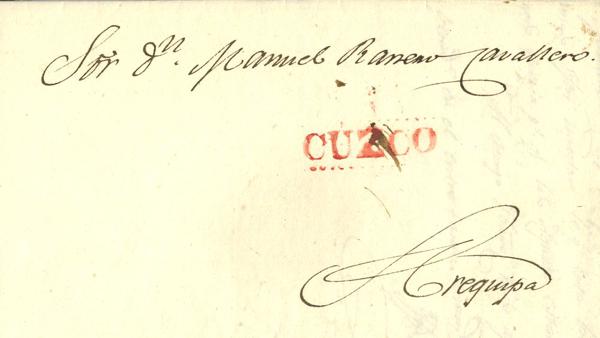 Sor Dn. Manuel Cavallero.
CUZCO
Arequipa